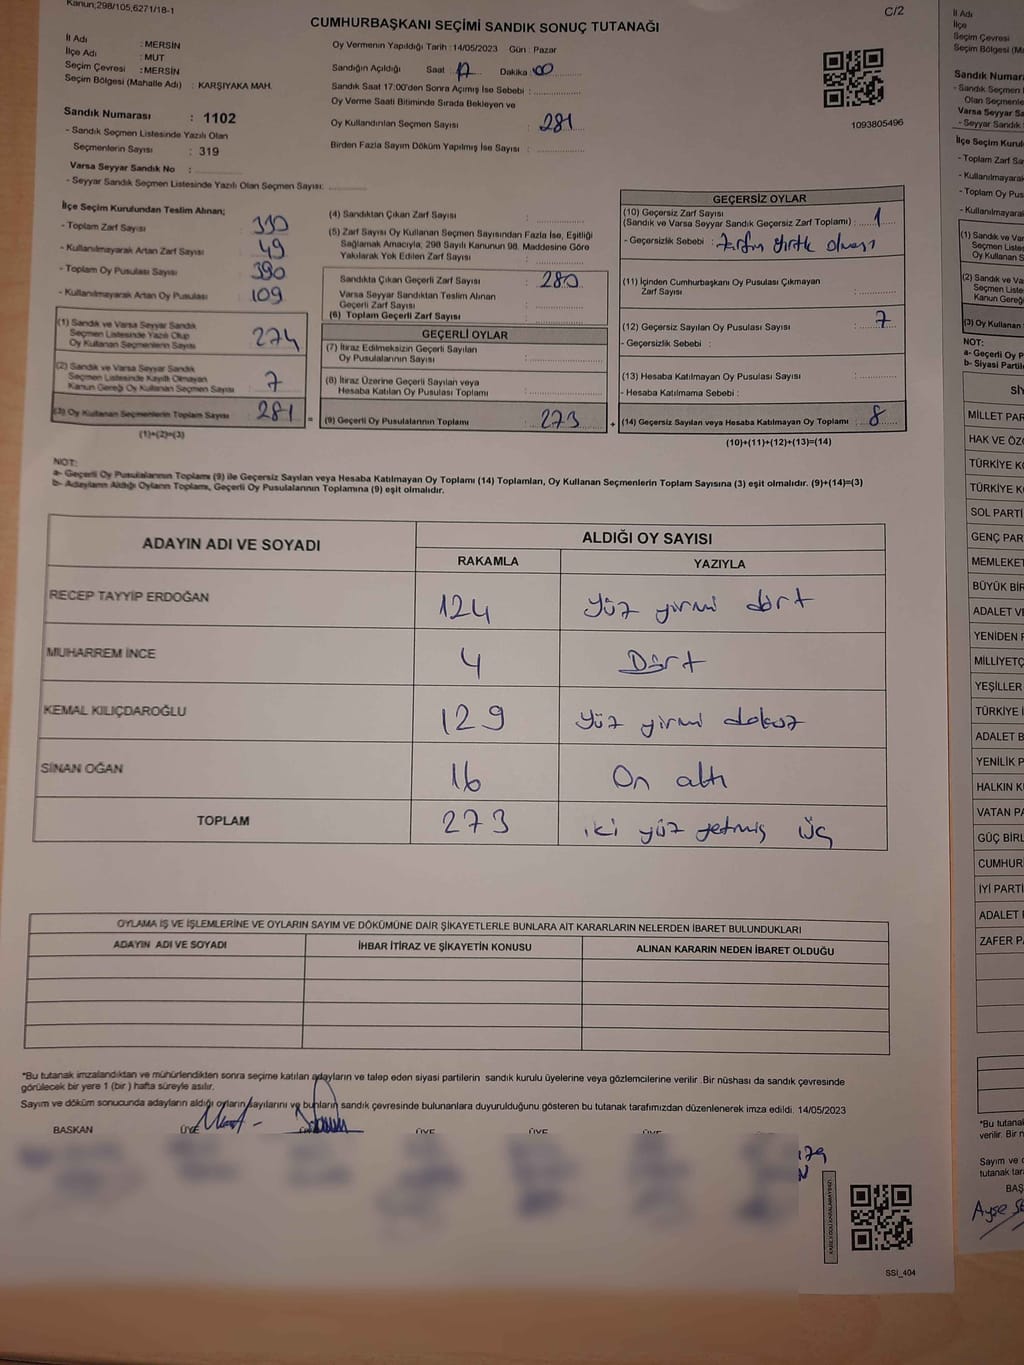 Kanun;298/105,6271/18-1
C/2
CUMHURBAŞKANI SEÇİMİ SANDIK SONUÇ TUTANAĞI
İl Adı : MERSİN
İlçe Adı : MUT
Seçim Çevresi : MERSİN
Seçim Bölgesi (Mahalle Adı) : KARŞIYAKA MAH.
Oy Vermenin Yapıldığı Tarih : 14/05/2023 Gün : Pazar
Sandığın Açıldığı Saat : 17 Dakika : 00
Sandık Saat 17:00'den Sonra Açımış İse Sebebi :
Oy Verme Saati Bitiminde Sırada Bekleyen ve
Oy Kullandırılan Seçmen Sayısı : 281
Birden Fazla Sayım Döküm Yapılmış İse Sayısı :
1093805496
Sandık Numarası : 1102
- Sandık Seçmen Listesinde Yazılı Olan
Seçmenlerin Sayısı : 319
Varsa Seyyar Sandık No :
- Seyyar Sandık Seçmen Listesinde Yazılı Olan Seçmen Sayısı:
İlçe Seçim Kurulundan Teslim Alınan;
- Toplam Zarf Sayısı 330
- Kullanılmayarak Artan Zarf Sayısı 49
- Toplam Oy Pusulası Sayısı 390
- Kullanılmayarak Artan Oy Pusulası 109
(1) Sandık ve Varsa Seyyar Sandık
Seçmen Listesinde Yazılı Olup
Oy Kullanan Seçmenlerin Sayısı 274
(2) Sandık ve Varsa Seyyar Sandık
Seçmen Listesinde Kayıtlı Olmayan
Kanun Gereği Oy Kullanan Seçmen Sayısı 7
(3) Oy Kullanan Seçmenlerin Toplam Sayısı 281 =
(1)+(2)=(3)
(4) Sandıktan Çıkan Zarf Sayısı :
(5) Zarf Sayısı Oy Kullanan Seçmen Sayısından Fazla İse, Eşitliği
Sağlamak Amacıyla, 298 Sayılı Kanunun 98. Maddesine Göre
Yakılarak Yok Edilen Zarf Sayısı :
Sandıkta Çıkan Geçerli Zarf Sayısı : 280
Varsa Seyyar Sandıktan Teslim Alınan
Geçerli Zarf Sayısı :
(6) Toplam Geçerli Zarf Sayısı :
GEÇERLİ OYLAR
(7) İtiraz Edilmeksizin Geçerli Sayılan
Oy Pusulalarının Sayısı :
(8) İtiraz Üzerine Geçerli Sayılan veya
Hesaba Katılan Oy Pusulası Toplamı :
(9) Geçerli Oy Pusulalarının Toplamı : 273 +
GEÇERSİZ OYLAR
(10) Geçersiz Zarf Sayısı
(Sandık ve Varsa Seyyar Sandık Geçersiz Zarf Toplamı) : 1
- Geçersizlik Sebebi : Zarfın yırtık olması
(11) İçinden Cumhurbaşkanı Oy Pusulası Çıkmayan
Zarf Sayısı :
(12) Geçersiz Sayılan Oy Pusulası Sayısı : 7
- Geçersizlik Sebebi :
(13) Hesaba Katılmayan Oy Pusulası Sayısı :
- Hesaba Katılmama Sebebi :
(14) Geçersiz Sayılan veya Hesaba Katılmayan Oy Toplamı : 8
(10)+(11)+(12)+(13)=(14)
NOT:
a- Geçerli Oy Pusulalarının Toplamı (9) ile Geçersiz Sayılan veya Hesaba Katılmayan Oy Toplamı (14) Toplamları, Oy Kullanan Seçmenlerin Toplam Sayısına (3) eşit olmalıdır. (9)+(14)=(3)
b- Adayların Aldığı Oyların Toplamı, Geçerli Oy Pusulalarının Toplamına (9) eşit olmalıdır.
ADAYIN ADI VE SOYADI
ALDIĞI OY SAYISI
RAKAMLA YAZIYLA
RECEP TAYYİP ERDOĞAN 124 Yüz yirmi dört
MUHARREM İNCE 4 Dört
KEMAL KILIÇDAROĞLU 129 Yüz yirmi dokuz
SİNAN OĞAN 16 On altı
TOPLAM 273 iki yüz yetmiş üç
OYLAMA İŞ VE İŞLEMLERİNE VE OYLARIN SAYIM VE DÖKÜMÜNE DAİR ŞİKAYETLERLE BUNLARA AİT KARARLARIN NELERDEN İBARET BULUNDUKLARI
ADAYIN ADI VE SOYADI İHBAR İTİRAZ VE ŞİKAYETİN KONUSU ALINAN KARARIN NEDEN İBARET OLDUĞU
*Bu tutanak imzalandıktan ve mühürlendikten sonra seçime katılan adayların ve talep eden siyasi partilerin sandık kurulu üyelerine veya gözlemcilerine verilir .Bir nüshası da sandık çevresinde
görülecek bir yere 1 (bir ) hafta süreyle asılır.
Sayım ve döküm sonucunda adayların aldığı oyların sayılarını ve bunların sandık çevresinde bulunanlara duyurulduğunu gösteren bu tutanak tarafımızdan düzenlenerek imza edildi. 14/05/2023
BASKAN ÜYE ÜYE ÜYE ÜYE
SSI_404
İl Adı
İlçe
Seçim Çevresi
Seçim Bölgesi (Ma
Sandık Numara
- Sandık Seçmen
Olan Seçmenle
Varsa Seyyar Sa
- Seyyar Sandık
İlçe Seçim Kurul
- Toplam Zarf Sa
- Kullanılmayarak
- Toplam Oy Pus
- Kullanılmayarak
(1) Sandık ve Va
Seçmen Liste
Oy Kullanan
(2) Sandık ve Va
Seçmen Liste
Kanun Gereğ
(3) Oy Kullanan
NOT:
a- Geçerli Oy P
b- Siyasi Partil
SİY
MİLLET PAR
HAK VE ÖZG
TÜRKİYE KO
TÜRKİYE K
SOL PARTİ
GENÇ PAR
MEMLEKET
BÜYÜK BİR
ADALET VE
YENİDEN
MİLLİYETÇ
YEŞİLLER
TÜRKİYE İ
ADALET B
YENİLİK P
HALKIN K
VATAN PA
GÜÇ BİRL
CUMHUR
İYİ PARTİ
ADALET
ZAFER PA
*Bu tutana
verilir. Bir n
Sayım ve
tutanak tar
BAŞ
Ayşe